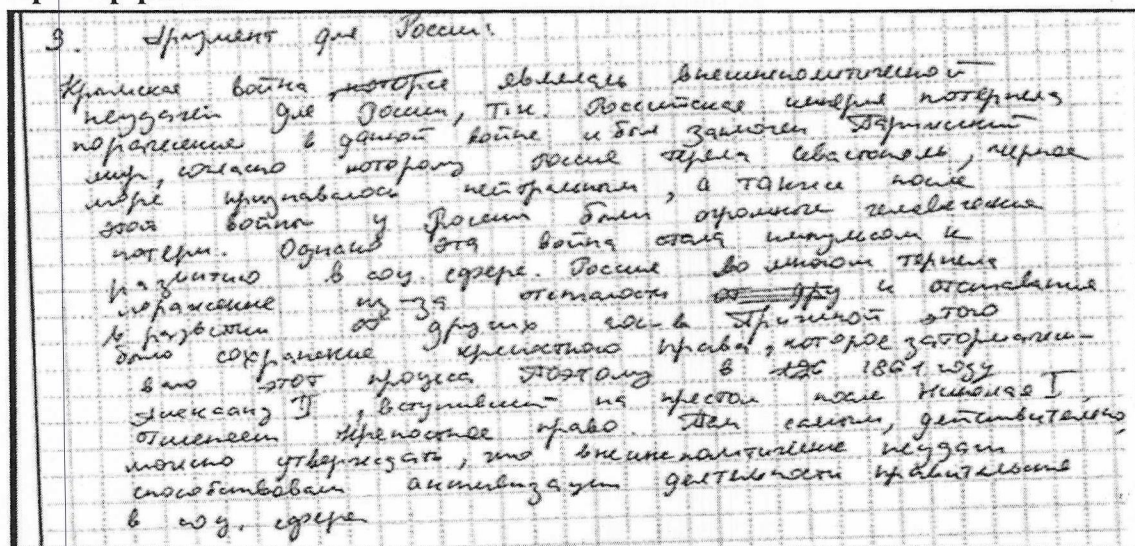 3. Аргумент для России:
Крымская война, ~~которое~~ являлась внешнеполитической
неудачей для России, т.к. Российская империя потерпела
поражение в данной войне и был заключен Парижский
мир, согласно которому Россия теряла Севастополь, Черное
море признавалось нейтральным, а также после
этой войны у России были огромные человеческие
потери. Однако эта война стала импульсом к
развитию в соц. сфере. Россия во многом терпела
поражение из-за отсталости ~~от дру~~ и отставания
в развитии от других гос-в Причиной этого
было сохранение крепостного права, которое заторможи-
вало этот процесс Поэтому в ~~186~~ 1861 году
Александ II, вступивший на престол после Николая I,
отменяет крепостное право. Тем самым, действительно,
можно утверждать, что внешнеполитические неудачи
способствовали активизации деятельности правительства
в соц. сфере